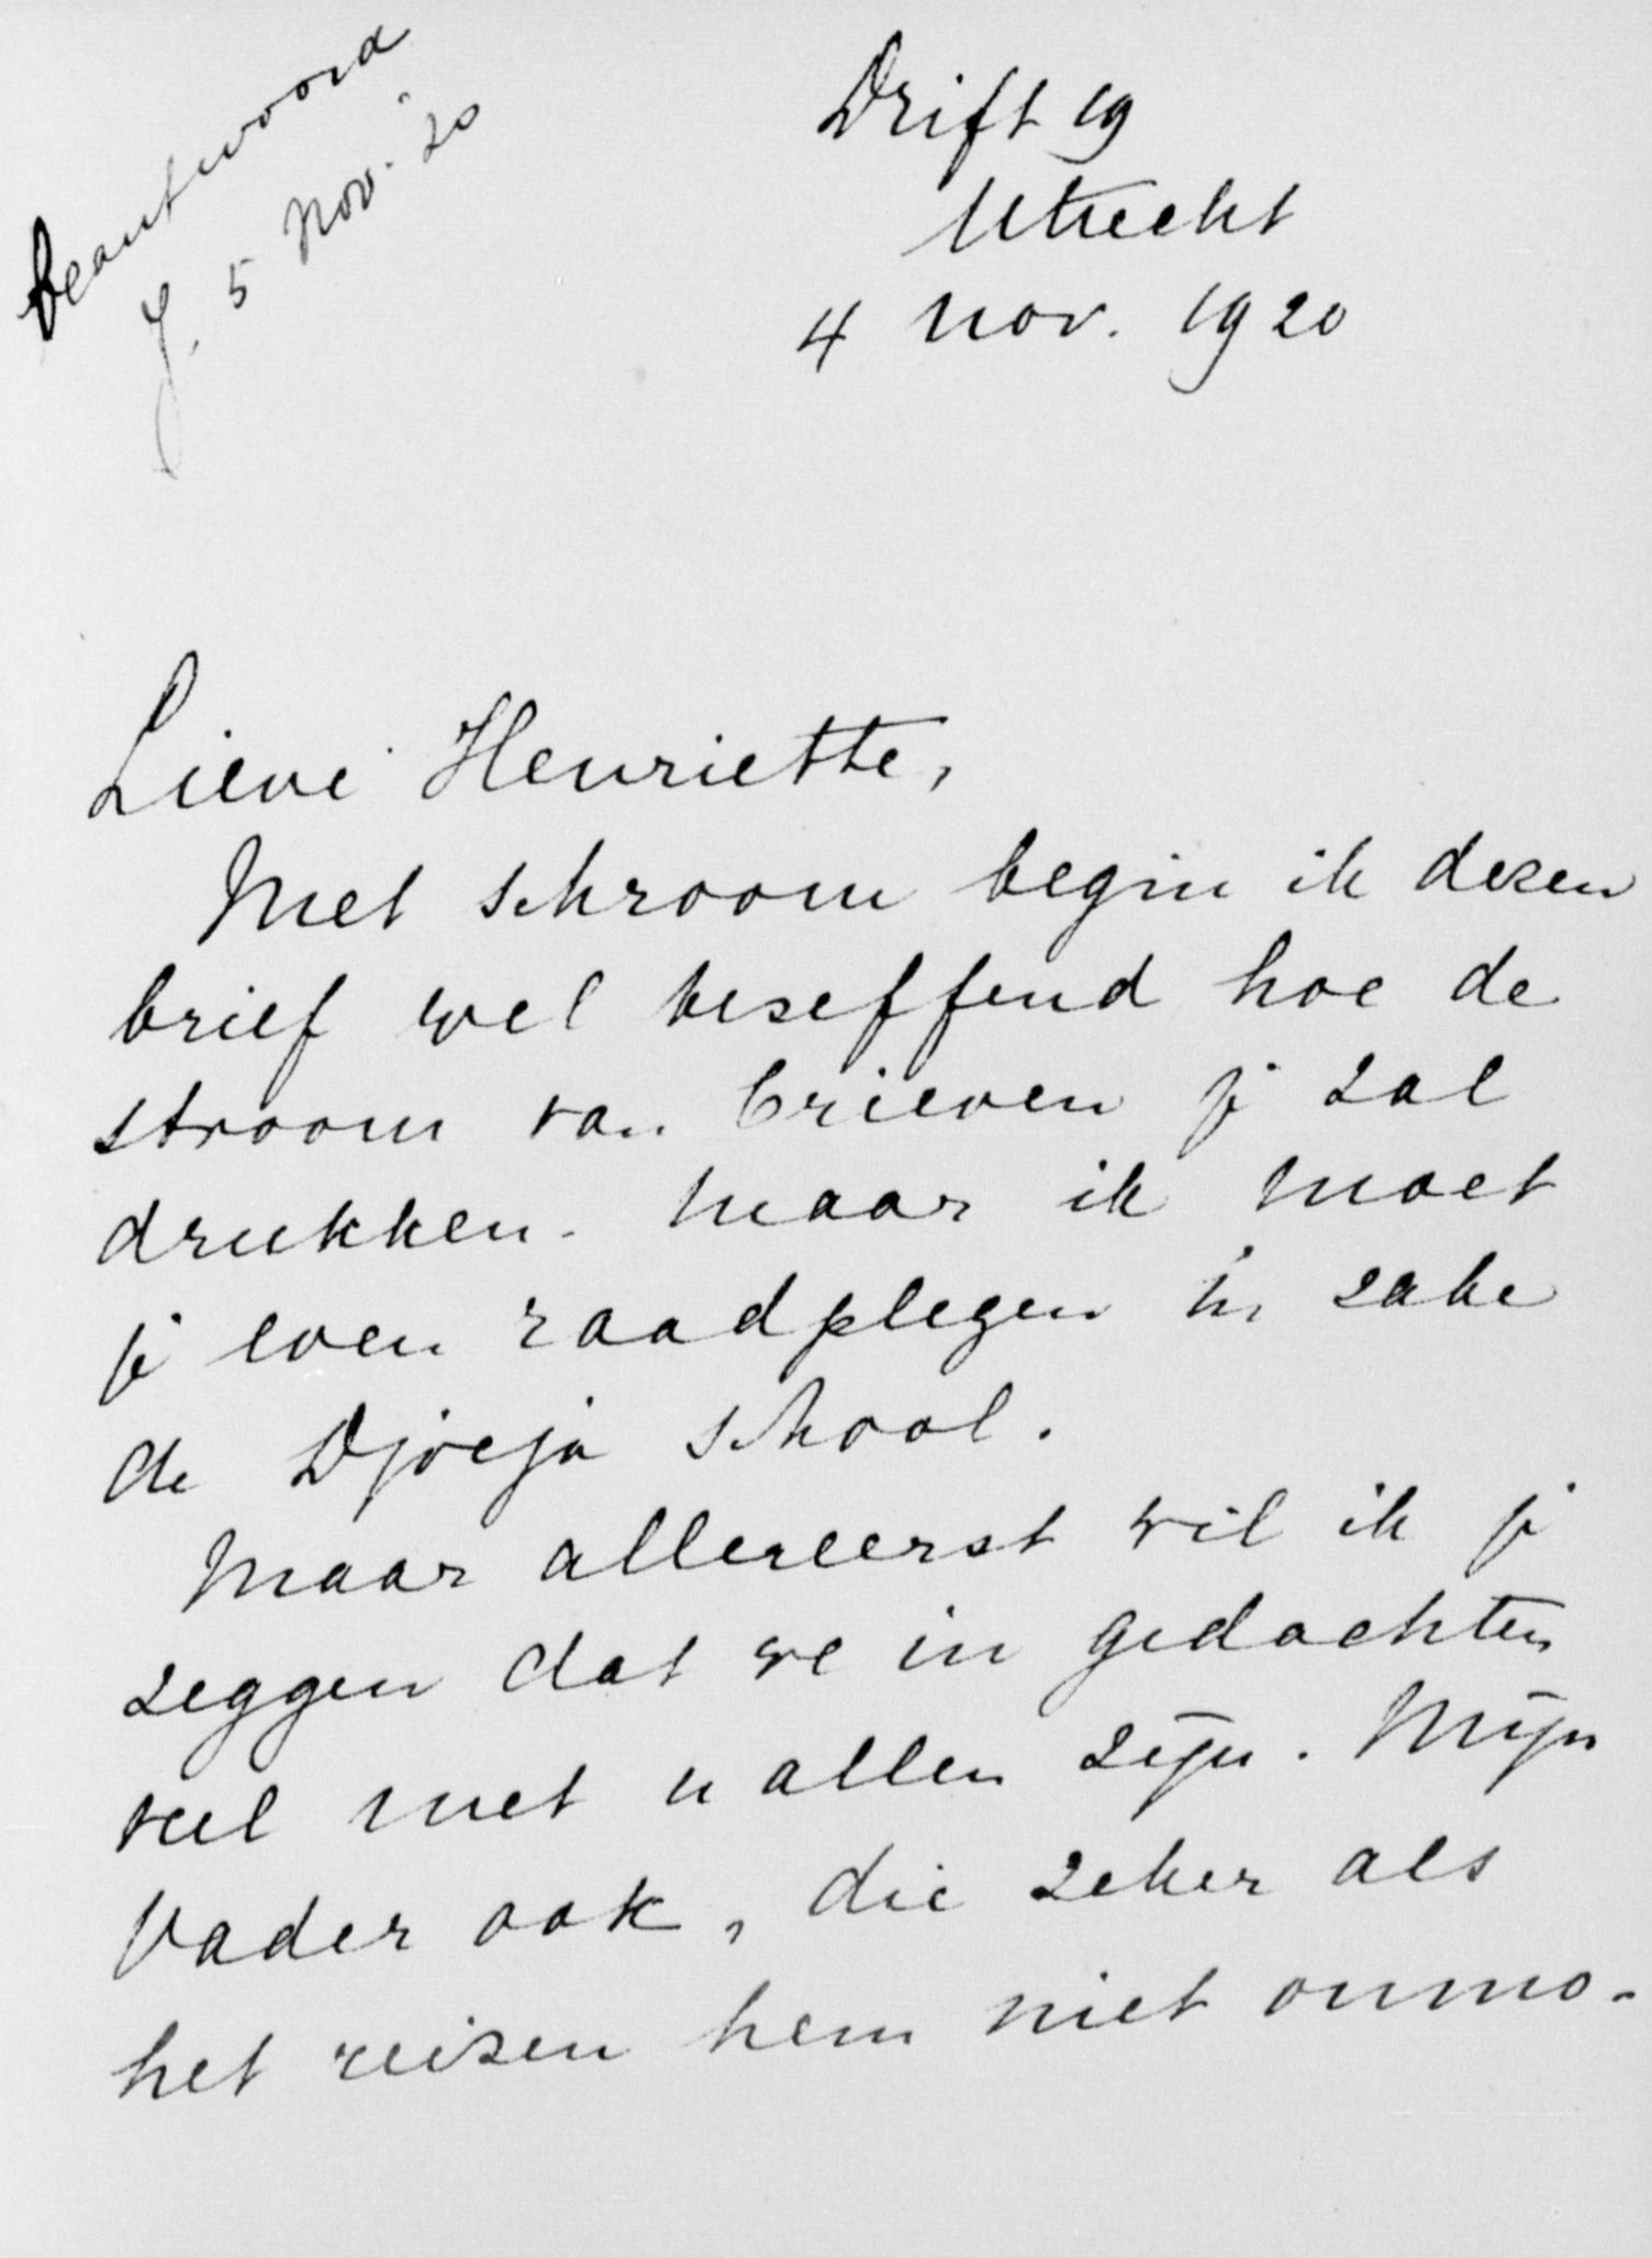 beantwoord
J. 5 Nov. '20
Drift 19
Utrecht
4 Nov. 1920
Lieve Henriette,
Met schroom begin ik dezen
brief wel beseffend hoe de
stroom van brieven je zal
drukken. Maar ik moet
je even raadplegen in zake
de Djoeja school.
Maar allereerst wil ik je
zeggen dat we in gedachten
veel met u allen zijn. Mijn
Vader ook, die zeker als
het reizen hem niet onmo-